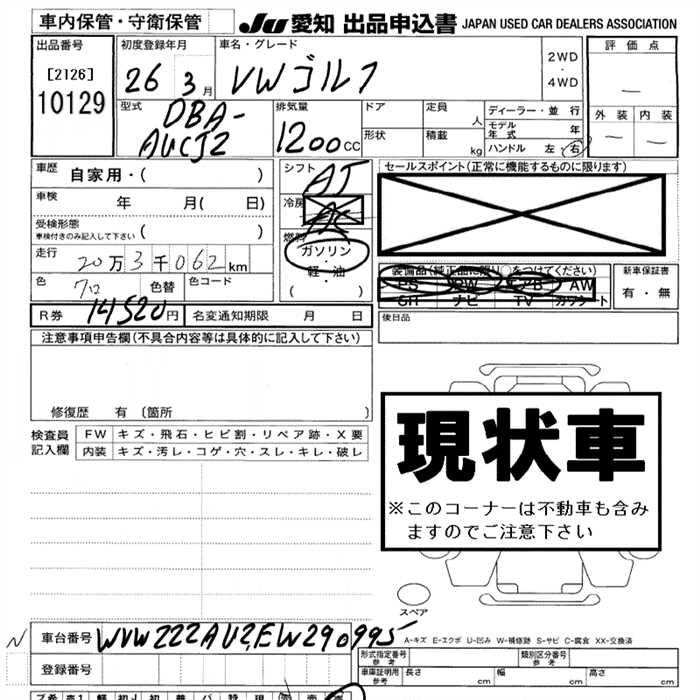 車内保管・守衛保管
JU 愛知 出品申込書 JAPAN USED CAR DEALERS ASSOCIATION
出品番号
[2126]
10129
初度登録年月
26 3月
車名・グレード
VWゴルフ
2WD
・
4WD
評価点
—
外装 内装
— —
型式
DBA-
AUCJZ
排気量
1200cc
ドア
定員
人
形状
積載
kg
ディーラー・並行
モデル年式
年
ハンドル 左・右
車歴
自家用・( )
車検
年 月( 日)
受検形態
車検付きのみ記入して下さい
( )
走行
20万3千062km
色
クロ
色替
色コード
シフト
AT
冷房
AC
燃料
ガソリン
・
軽・油
( )
セールスポイント(正常に機能するものに限ります)
装備品(純正品に限り○をつけてください)
PS PW エアB AW
SR ナビ TV カワシート
新車保証書
有・無
R券
14520円
名変通知期限 月 日
後日品
注意事項申告欄(不具合内容等は具体的に記入して下さい)
修復歴 有 [箇所 ]
検査員
記入欄
FW キズ・飛石・ヒビ割・リペア跡・X要
内装 キズ・汚レ・コゲ・穴・スレ・キレ・破レ
現状車
※このコーナーは不動車も含み
ますのでご注意下さい
スペア
A-キズ E-エクボ U-凹み W-補修跡 S-サビ C-腐食 XX-交換済
N
車台番号
WVWZZZAUZEW290995
登録番号
形式指定番号
参考
類別区分番号
参考
車庫証明用
参考
長さ cm
幅 cm
高さ cm